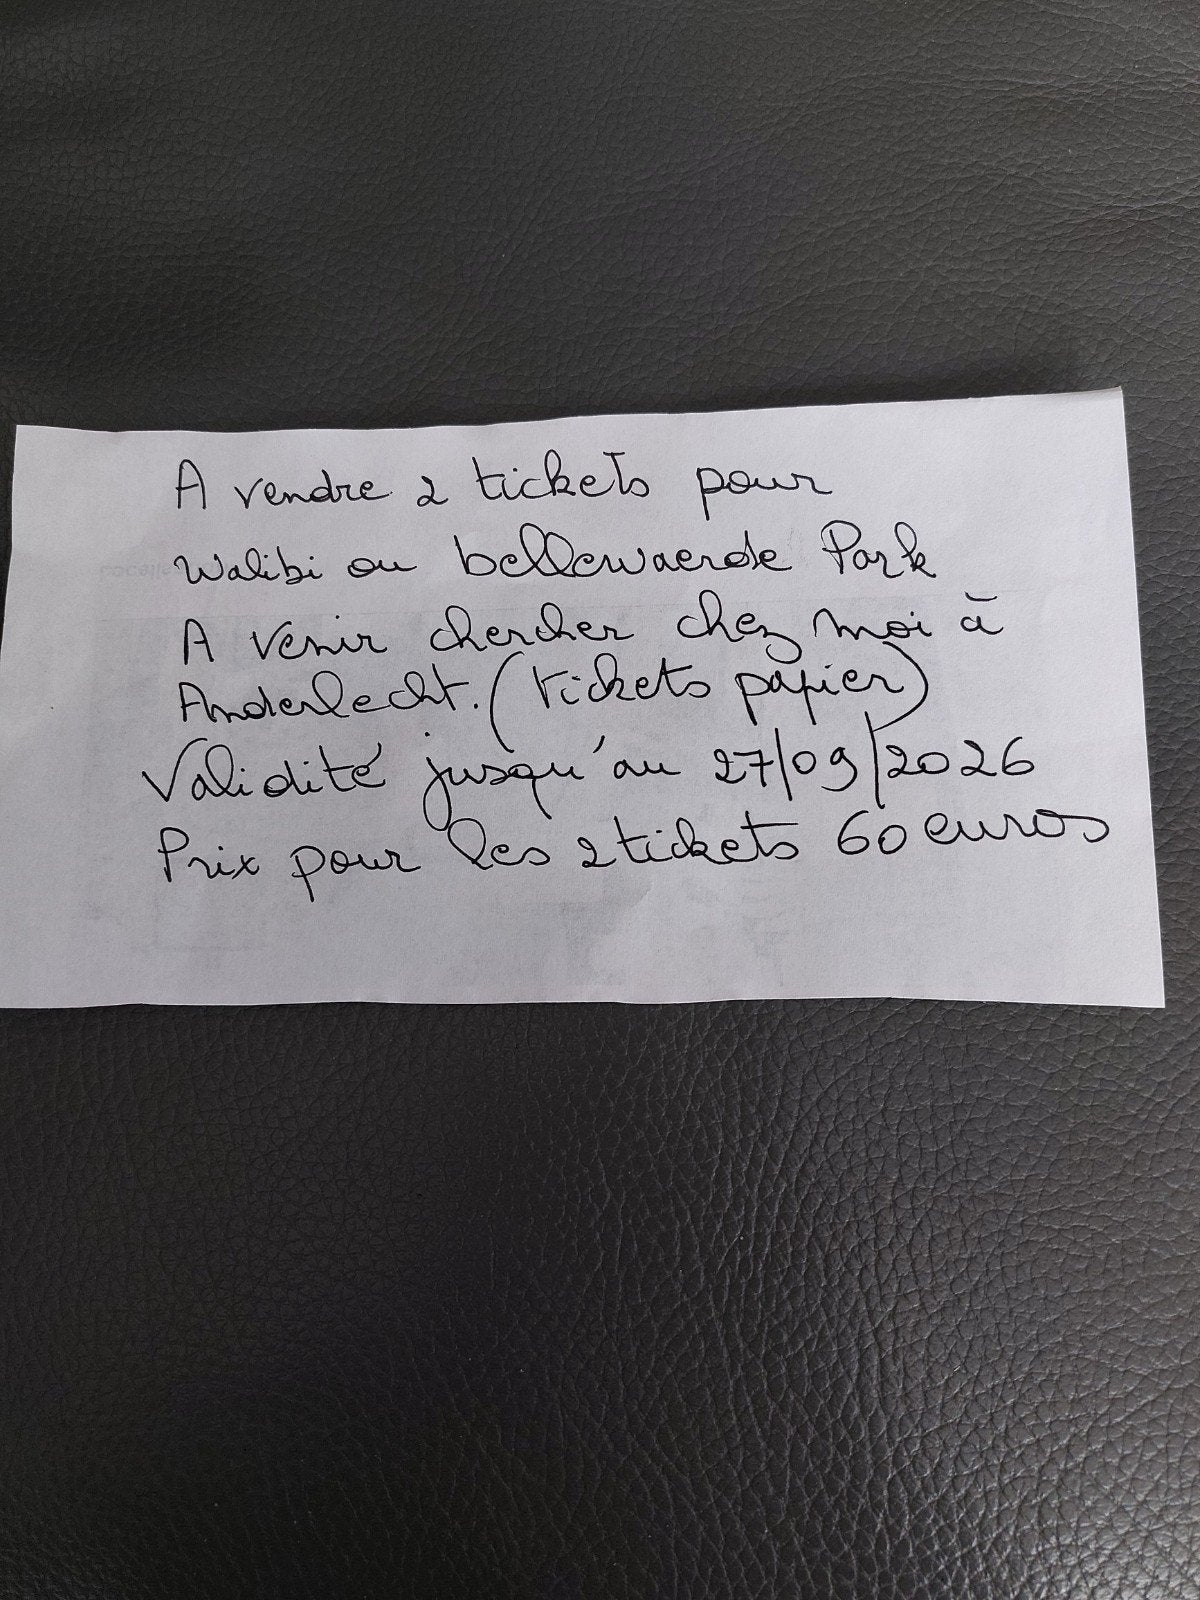 A vendre 2 tickets pour
Walibi ou bellewaerde Park
A venir chercher chez moi à
Anderlecht. (tickets papier)
Validité jusqu'au 27/09/2026
Prix pour les 2 tickets 60 euros